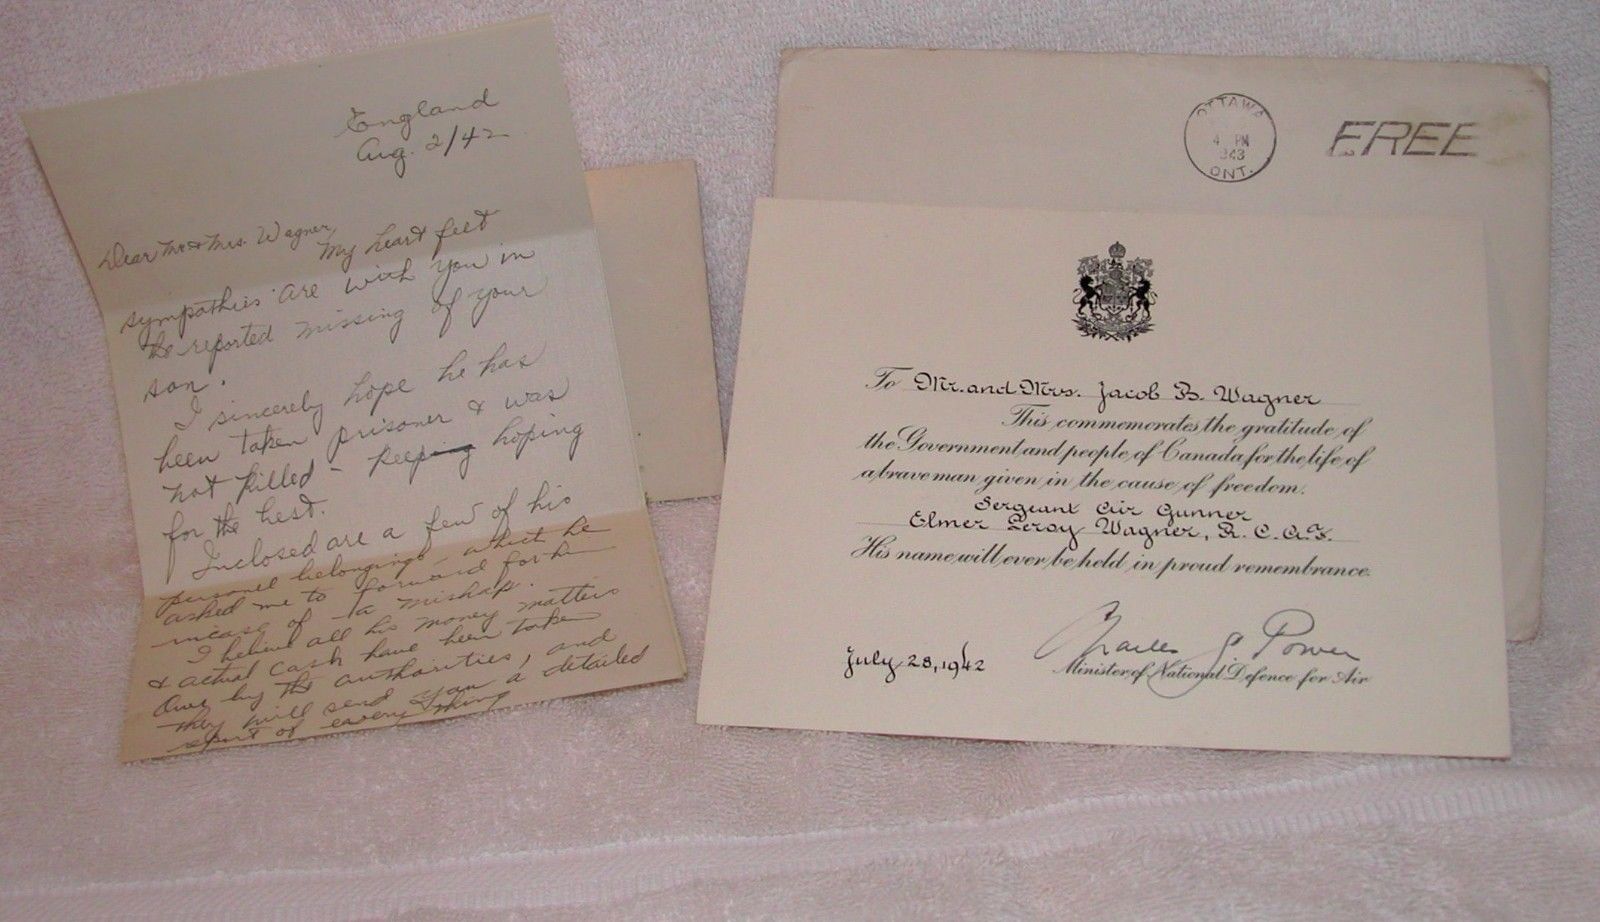 England
Aug. 2/42
Dear Mr & Mrs. Wagner,
My heart felt
sympathies are with you in
the reported missing of your
son.
I sincerely hope he has
been taken prisoner & was
not killed - keeping hoping
for the best.
Inclosed are a few of his
personel belongings - which he
asked me to forward for him
incase of a mishap.
I believe all his money matters
& actual cash have been taken
over by the authorities, and
they will send you a detailed
report of every thing
OTTAWA
4 PM
943
ONT.
FREE
To Mr. and Mrs. Jacob B. Wagner
This commemorates the gratitude of
the Government and people of Canada for the life of
a brave man given in the cause of freedom.
Sergeant Air Gunner
Elmer Leroy Wagner, R.C.A.F.
His name will ever be held in proud remembrance.
Charles G. Power
July 28, 1942
Minister of National Defence for Air